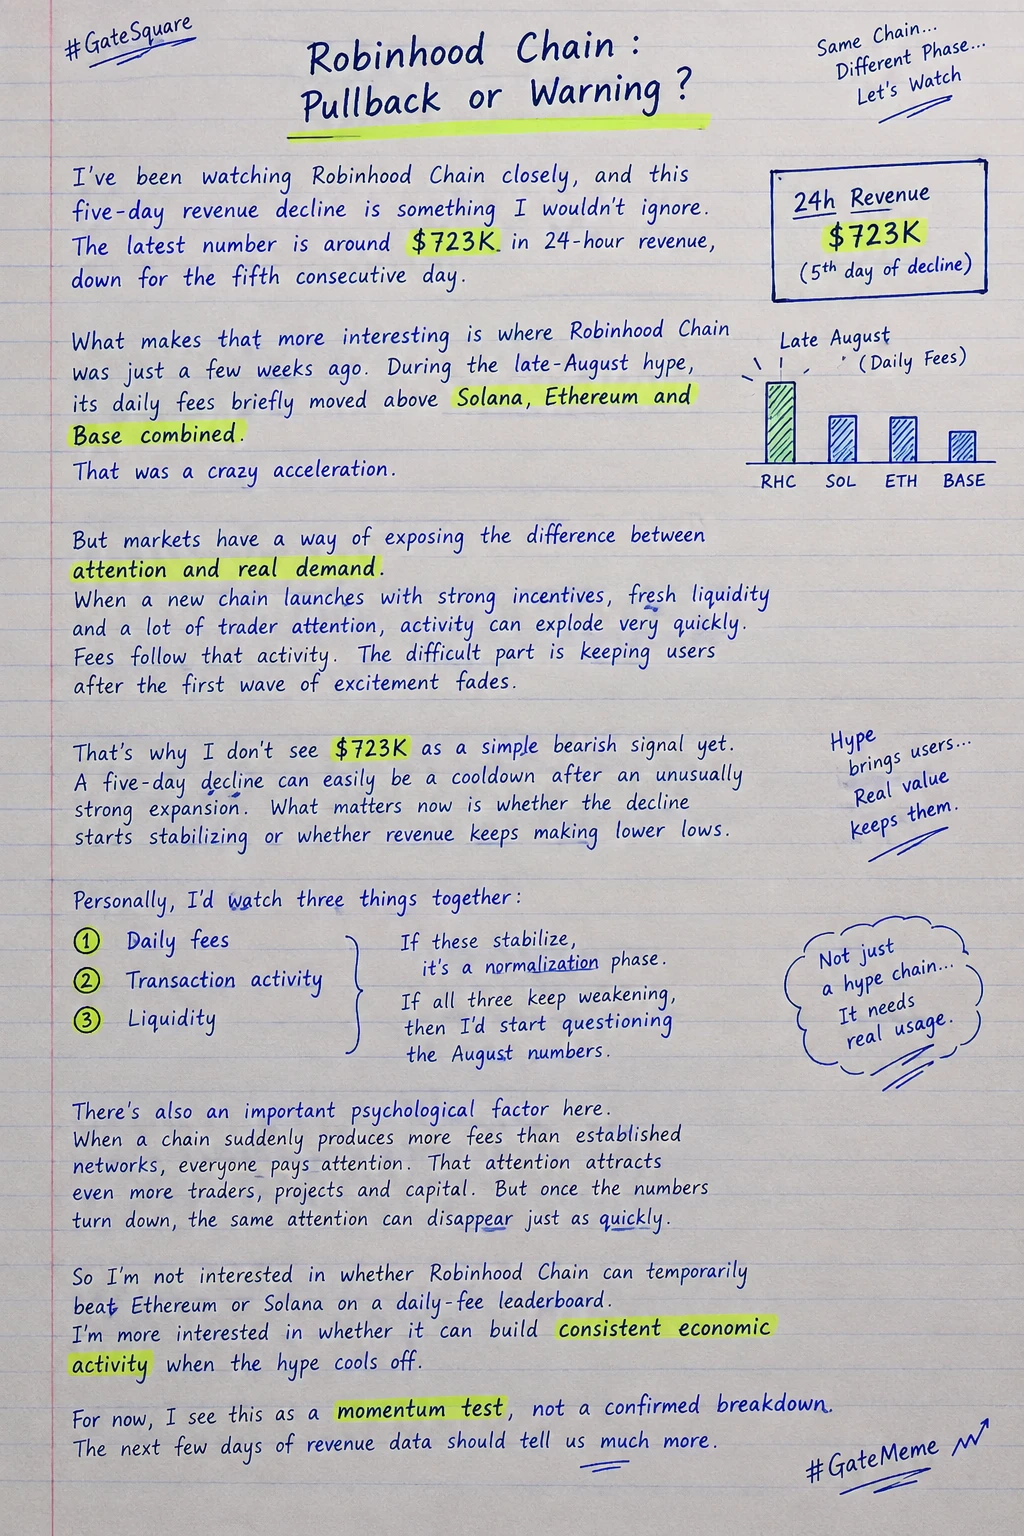 #GateSquare
Robinhood Chain :
Pullback or Warning ?
Same Chain...
Different Phase...
Let's Watch
I've been watching Robinhood Chain closely, and this
five-day revenue decline is something I wouldn't ignore.
The latest number is around $723K in 24-hour revenue,
down for the fifth consecutive day.
24h Revenue
$723K
(5th day of decline)
What makes that more interesting is where Robinhood Chain
was just a few weeks ago. During the late-August hype,
its daily fees briefly moved above Solana, Ethereum and
Base combined.
That was a crazy acceleration.
Late August
(Daily Fees)
RHC SOL ETH BASE
But markets have a way of exposing the difference between
attention and real demand.
When a new chain launches with strong incentives, fresh liquidity
and a lot of trader attention, activity can explode very quickly.
Fees follow that activity. The difficult part is keeping users
after the first wave of excitement fades.
That's why I don't see $723K as a simple bearish signal yet.
A five-day decline can easily be a cooldown after an unusually
strong expansion. What matters now is whether the decline
starts stabilizing or whether revenue keeps making lower lows.
Hype
brings users...
Real value
keeps them.
Personally, I'd watch three things together:
1 Daily fees
2 Transaction activity
3 Liquidity
If these stabilize,
it's a normalization phase.
If all three keep weakening,
then I'd start questioning
the August numbers.
Not just
a hype chain...
It needs
real usage.
There's also an important psychological factor here.
When a chain suddenly produces more fees than established
networks, everyone pays attention. That attention attracts
even more traders, projects and capital. But once the numbers
turn down, the same attention can disappear just as quickly.
So I'm not interested in whether Robinhood Chain can temporarily
beat Ethereum or Solana on a daily-fee leaderboard.
I'm more interested in whether it can build consistent economic
activity when the hype cools off.
For now, I see this as a momentum test, not a confirmed breakdown.
The next few days of revenue data should tell us much more.
#GateMeme